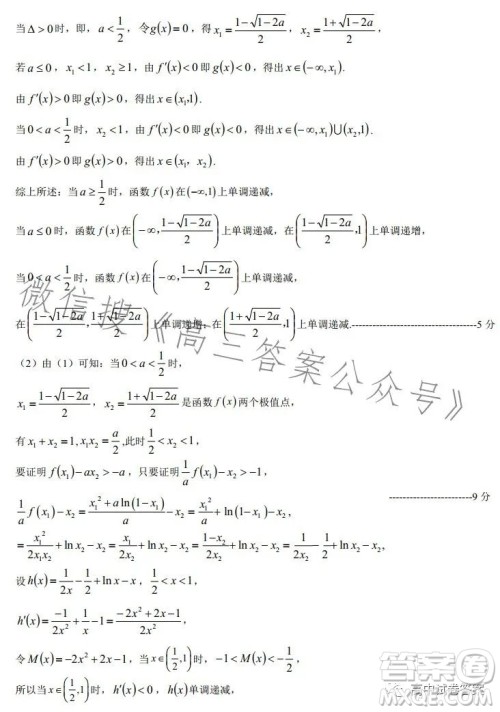 当 Δ > 0 时，即，a < 1/2，令 g(x) = 0，得 x₁ = (1−√(1−2a))/2，x₂ = (1+√(1−2a))/2，
若 a ≤ 0，x₁ < 1，x₂ ≥ 1，由 f′(x) < 0 即 g(x) < 0，得出 x ∈ (−∞, x₁).
由 f′(x) > 0 即 g(x) > 0，得出 x ∈ (x₁, 1).
当 0 < a < 1/2 时，x₂ < 1，由 f′(x) < 0 即 g(x) < 0，得出 x ∈ (−∞, x₁) ∪ (x₂, 1).
由 f′(x) > 0 即 g(x) > 0，得出 x ∈ (x₁，x₂).
综上所述：当 a ≥ 1/2 时，函数 f(x) 在 (−∞,1) 上单调递减，
当 a ≤ 0 时，函数 f(x) 在 (−∞, (1−√(1−2a))/2) 上单调递减，在 ((1−√(1−2a))/2, 1) 上单调递增，
当 0 < a < 1/2 时，函数 f(x) 在 (−∞, (1−√(1−2a))/2) 上单调递减，
在 ((1−√(1−2a))/2, (1+√(1−2a))/2) 上单调递增；在 ((1+√(1−2a))/2, 1) 上单调递减.------------------------------------5 分
（2）由（1）可知：当 0 < a < 1/2 时，
x₁ = (1−√(1−2a))/2，x₂ = (1+√(1−2a))/2 是函数 f(x) 两个极值点，
有 x₁ + x₂ = 1, x₁x₂ = a/2 ,此时 1/2 < x₂ < 1，
要证明 f(x₁) − ax₂ > −a，只要证明 (1/a) f(x₁) − x₂ > −1，
(1/a) f(x₁) − x₂ = (x₁² + a ln(1−x₁))/a − x₂ = x₁²/a + ln(1−x₁) − x₂
------------------------9 分
= x₁²/(2x₁x₂) + ln x₂ − x₂ = x₁/(2x₂) + ln x₂ − x₂ = (1−x₂)/(2x₂) + ln x₂ − x₂ = 1/(2x₂) − 1/2 + ln x₂ − x₂，
设 h(x) = 1/(2x) − 1/2 + ln x − x，1/2 < x < 1，
h′(x) = −1/(2x²) + 1/x − 1 = (−2x² + 2x − 1)/(2x²)，
令 M(x) = −2x² + 2x − 1，当 x ∈ (1/2, 1) 时，−1 < M(x) < −1/2，
所以当 x ∈ (1/2, 1) 时，h′(x) < 0，h(x) 单调递减，
微信搜《高三答案公众号》
答案圈
高中试卷答案